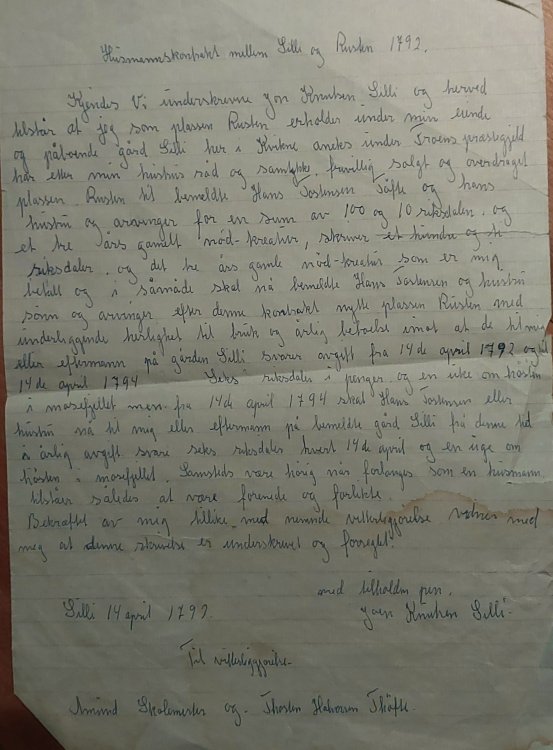 Husmannskontrakt mellem Lilli og Rusten 1792.
Kjendes Vi underskrevne Jon Knutsen Lilli og herved
tilstår at jeg som plassen Rusten erholder under min eiende
og påboende gård Lilli her i Kvikne aneks under præstegjeld
har efter min hustrus råd og samtykke, frivillig solgt og overdraget
plassen Rusten til bemeldte Hans Torstensen og hans
hustru og arvinger for en sum av 100 og 10 riksdaler. og
et tre års gamelt nöd-kreatur, skriver et hundre og ti
riksdaler. og det tre års gamle nöd-kreatur som er mig
betalt og i såmåde skal nå bemeldte Hans Torstensen og hustru
sonn og arvinger efter denne kontrakt nytte plassen Rusten med
underliggende herlighet til bruk og årlig imot at de til mig
eller eftermann på gården Lilli svarer avgift fra 14de april 1792 og til
14 de april 1794 Seks riksdaler i penger og en uke om hösten
i mosefjellet men fra 14de april 1794 skal Hans Torstensen eller
hustru nå til mig eller eftermann på bemeldte gård Lilli fra denne tid
i årlig avgift svare seks riksdaler hvert 14de april og en uge om
hösten i mosefjellet. Samsteds være hörig når forlanges som en husmann
tilstår således at være forenede og forlikte.
Bekræftet av mig tillike med nemnde vitterliggjörelse vidner med
meg at denne skrivelse er underskrevet og forseglet.
med tilholden pen.
Lilli 14 april 1792. Joen Knutsen Lilli.
Til vitterliggjörelse.
Amund Skolemester og Thosten Halvorsen